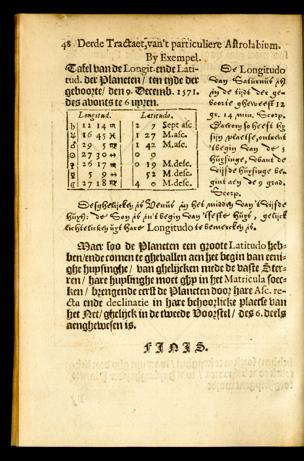 48 Derde Tractaet, van't particuliere Astrolabium.
By Exempel.
Tafel van de Longit. ende Lati-
tud. der Planeten / ten tyde der
geboorte / den 9. Decemb. 1571.
des avonts te 6 uyren.
Longitud. Latitudo.
♄ 12 14 ♏ 2 7 Sept asc
♃ 16 45 ♓ 1 27 M. asc.
♂ 29 5 ♏ 1 42 M. asc.
☉ 27 30 0
♀ 16 29 0 19 M. desc.
☿ 5 9 52 M. desc.
☾ 27 18 4 0 M. desc.
De Longitudo
van Saturnus
in de tijdt der ge-
boorte gheweest 12
gr. 14 min. Scorp.
't begin van de 3
huysinge, want de
vijfde huysinge be-
gint aen de 9 grad.
Scorp.
Desghelijcks Venus in het midden van 't vijfde
huys: de Son in 't begin van 't seste huys, gelijck
lichtelicken uyt hare Longitudo te bemercken is.
Maer soo de Planeten een groote Latitudo heb-
ben / ende comen te ghevallen aen het begin van eeni-
ghe huysinghe / van ghelijcken mede de vaste Ster-
ren / hare huysinghe moet ghy in het Matricula soec-
ken / brengende eerst de Planeten door hare Asc. re-
cta ende declinatie in hare behoorlicke plaetse van
het Net / ghelijck in de tweede Voorstel / des 6. deels
aenghewesen is.
FINIS.